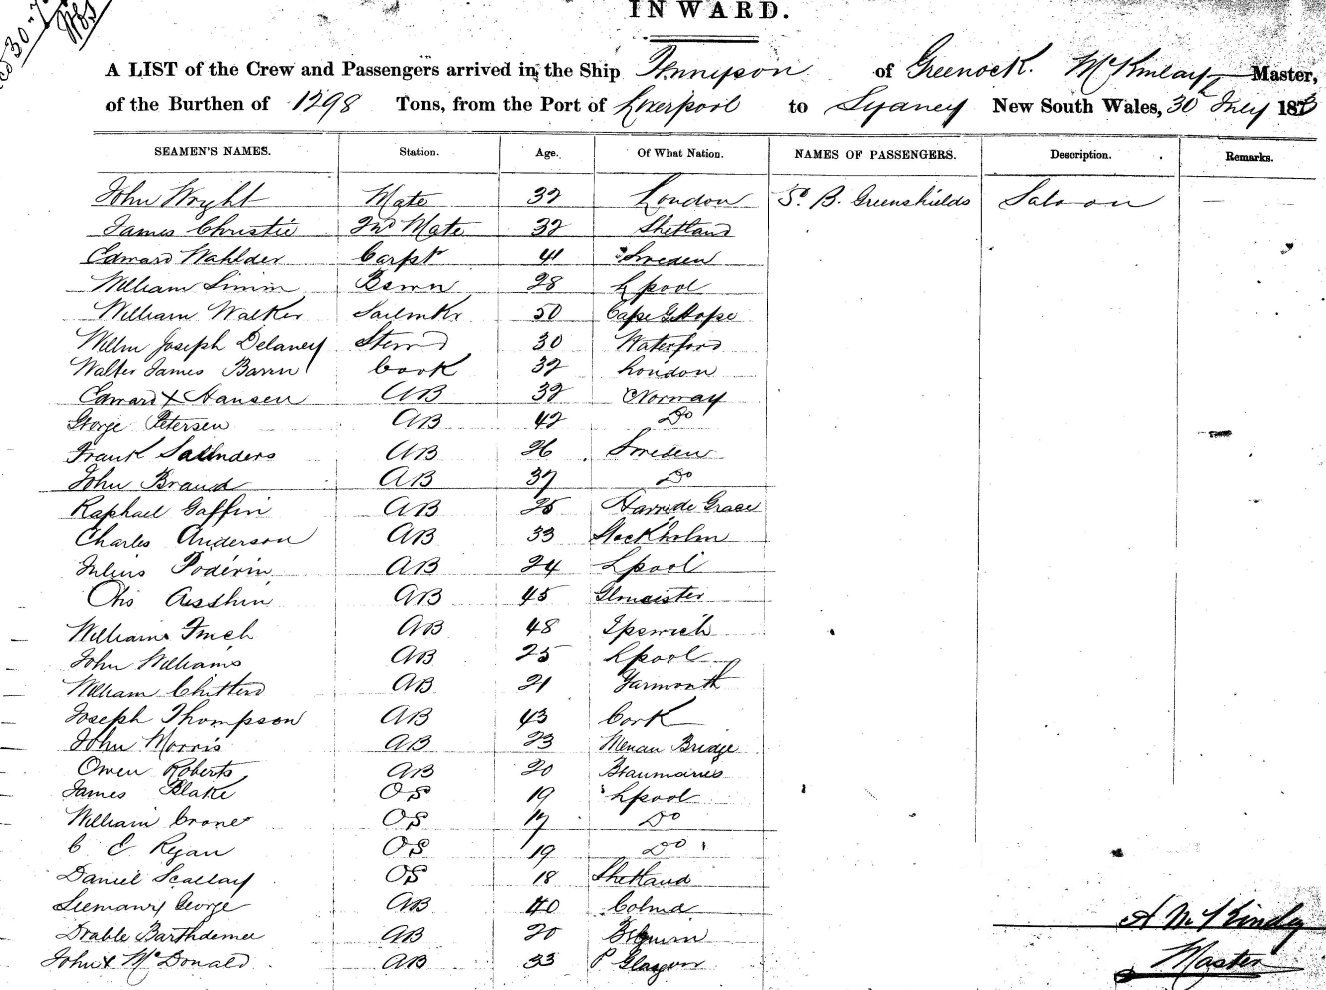 INWARD.
A LIST of the Crew and Passengers arrived in the Ship Tennyson of Greenock. McKinlay Master,
of the Burthen of 1298 Tons, from the Port of Liverpool to Sydney New South Wales, 30 July 1873
SEAMEN'S NAMES. Station. Age. Of What Nation. NAMES OF PASSENGERS. Description. Remarks.
John Wright Mate 32 London B. Greenshields Saloon
James Christie 2nd Mate 32 Shetland
Edward Wahlder Carpt 41 Sweden
William Simm Bswn 28 Lpool
William Walker SailmKr 50 Cape G Hope
Willm Joseph Delaney Stewd 30 Waterford
Walter James Barrn Cook 32 London
Edward X Hansen AB 32 Norway
George Petersen AB 42 Do
Frank Saunders AB 26 Sweden
John Brand AB 37 Do
Raphael Gaffin AB 25 Grace
Charles Anderson AB 33 Stockholm
Julius Poderin AB 24 Lpool
AB 45 Gloucester
William Finch AB 48 Ipswich
John Williams AB 25 Lpool
William AB 21 Yarmouth
Joseph Thompson AB 43 Cork
John Morris AB 23 Menau Bridge
Owen Roberts AB 20 Beaumaries
James Blake OS 19 Lpool
William Crone OS 17 Do
C E Ryan OS 19 Do
Daniel Scallay OS 18 Shetland
George AB 40
Drable AB 20
John X McDonald AB 33 P Glasgow
A McKinlay
Master